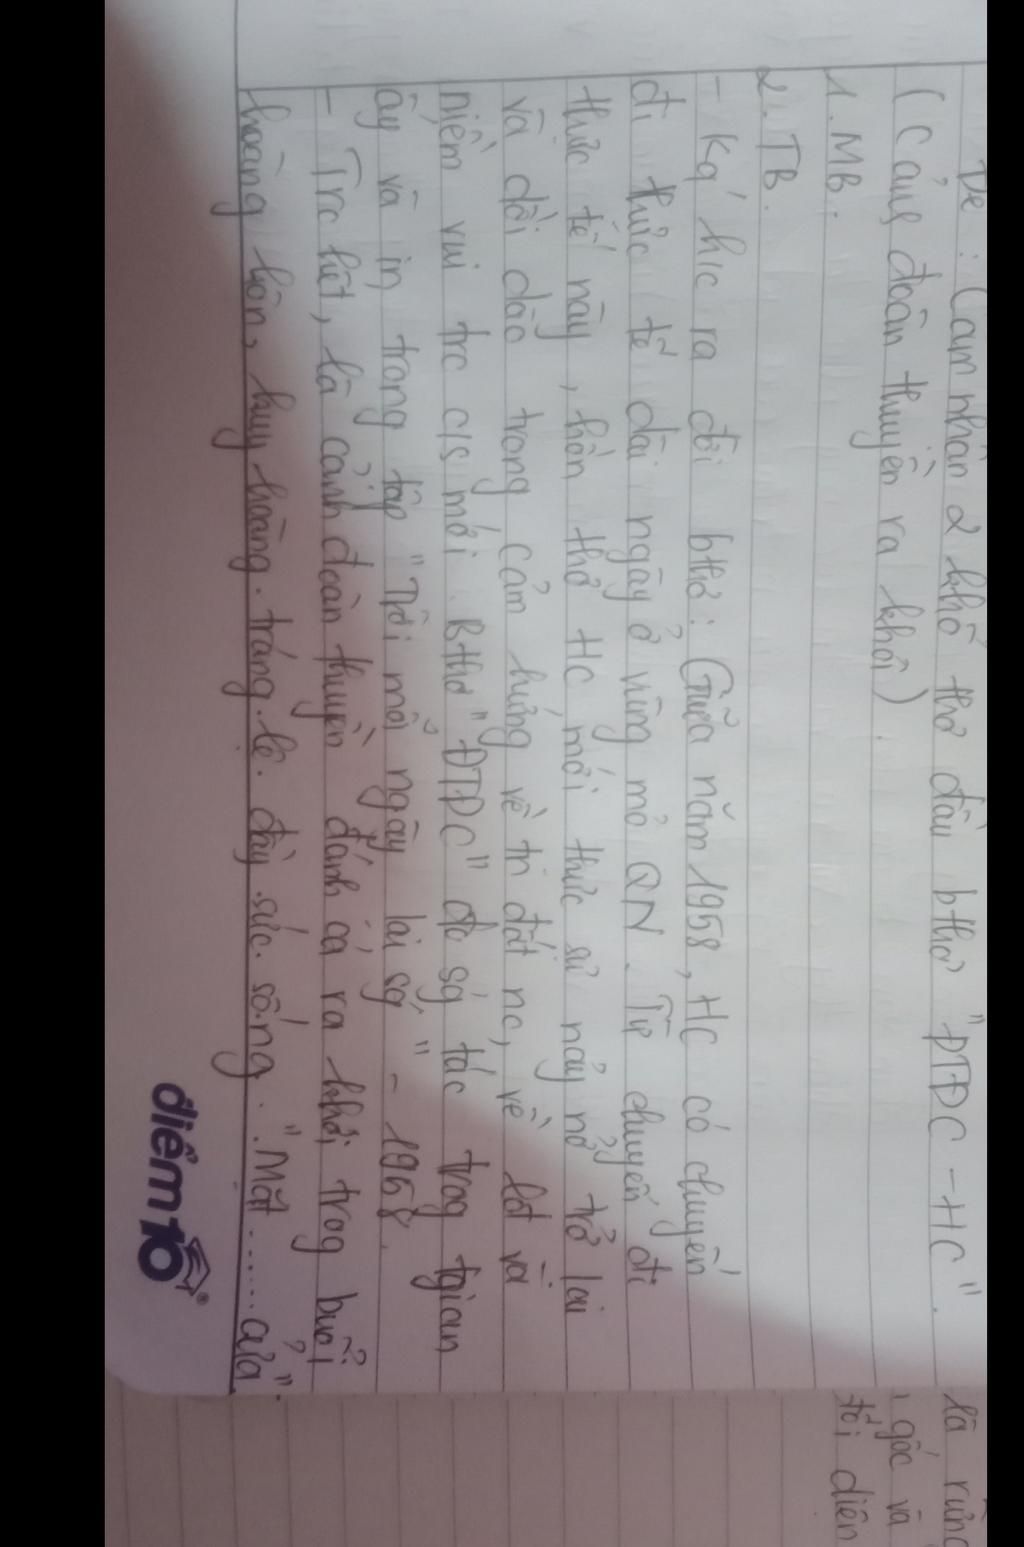 Đề: Cảm nhận 2 khổ thơ đầu bthơ "ĐTĐC - HC".
(Cảnh đoàn thuyền ra khơi).
1. MB:
2. TB.
- Kq' h/c ra đời bthơ: Giữa năm 1958, HC có chuyến
đi thực tế dài ngày ở vùng mỏ QN. Từ chuyến đi
thực tế này, hồn thơ HC mới thực sự nảy nở trở lại
và dồi dào trong cảm hứng về tn đất nc, về lđ và
niềm vui trc c/s mới. Bthơ "ĐTĐC" đc sg' tác trog tgian
ấy và in trong tập "Trời mỗi ngày lại sg'" - 1958.
- Trc hết, là cảnh đoàn thuyền đánh cá ra khơi trog buổi
hoàng hôn, huy hoàng. tráng. lệ. đầy. sức. sống. "Mặt.......cửa".
là rừng
gốc và
tối diện
điểm 10